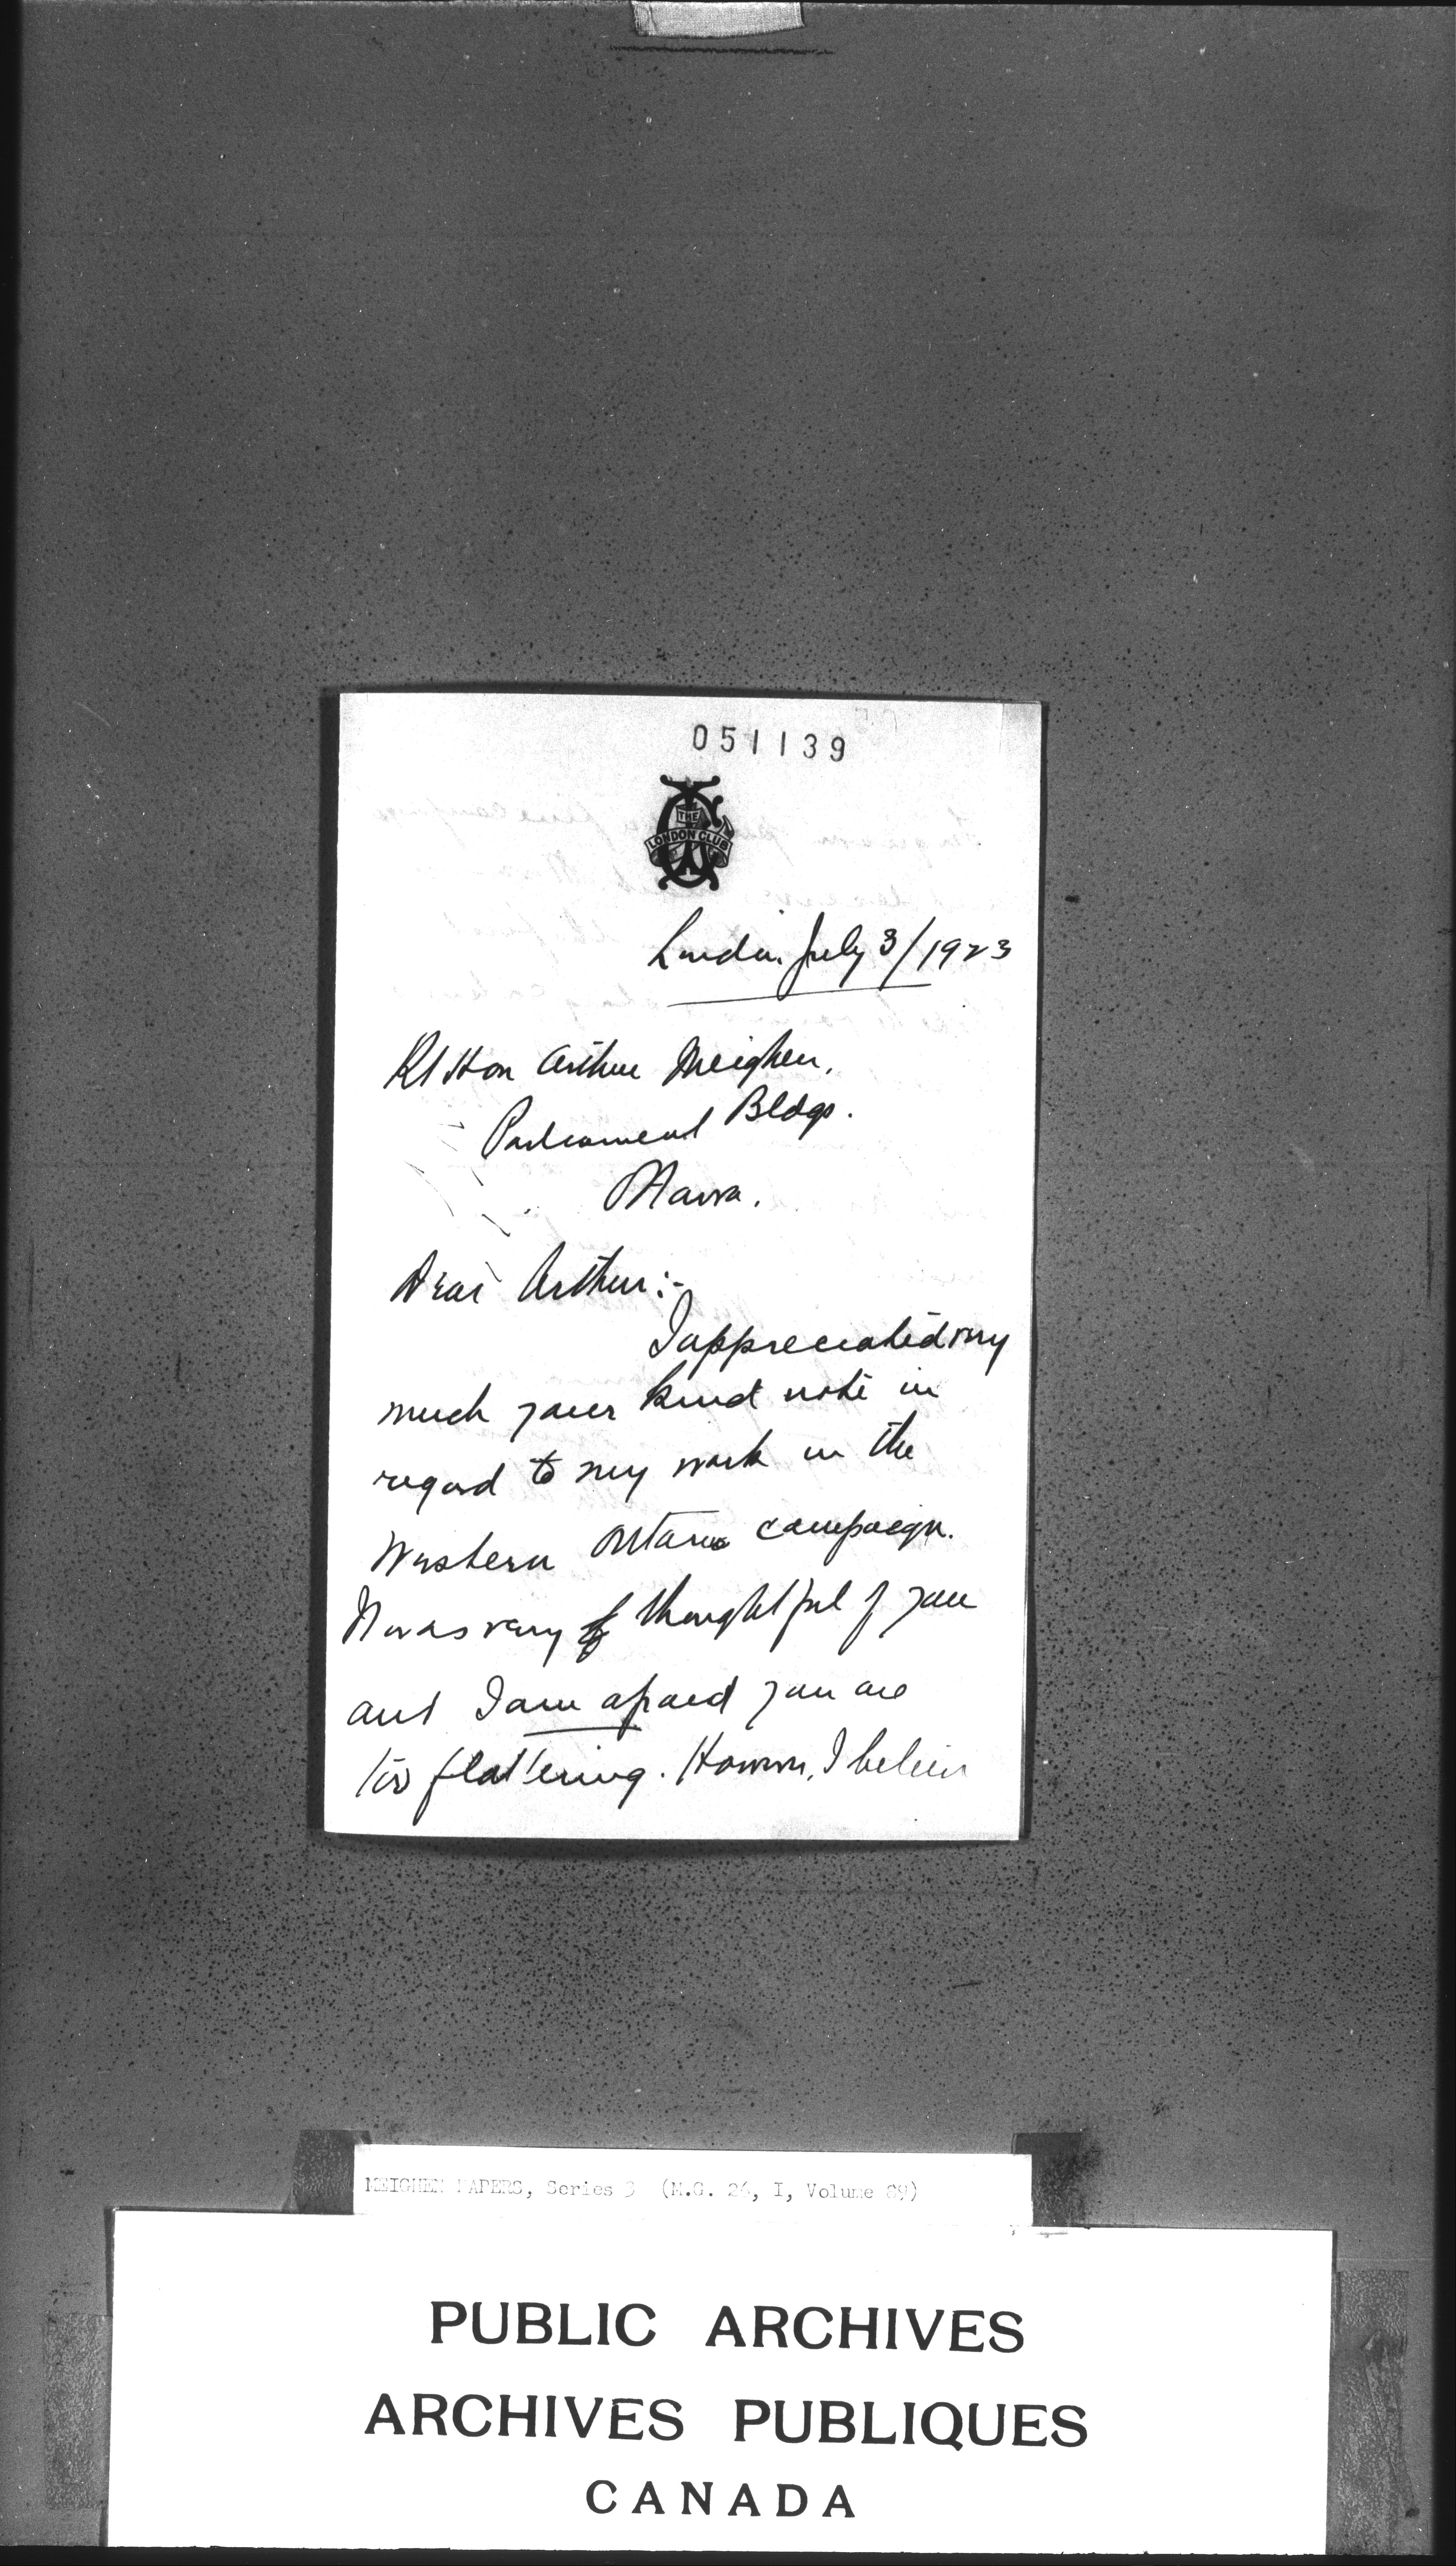 051139
THE
LONDON CLUB
London July 3/1923
Rt Hon Arthur Meighen,
Parliament Bldgs.
Ottawa.
Dear Arthur:-
I appreciated very
much your kind note in
regard to my work in the
Western Ontario campaign.
It was very thoughtful of you
and I am afraid you are
too flattering. However, I believe
MEIGHEN PAPERS, Series 3 (M.G. 26, I, Volume 89)
PUBLIC ARCHIVES
ARCHIVES PUBLIQUES
CANADA